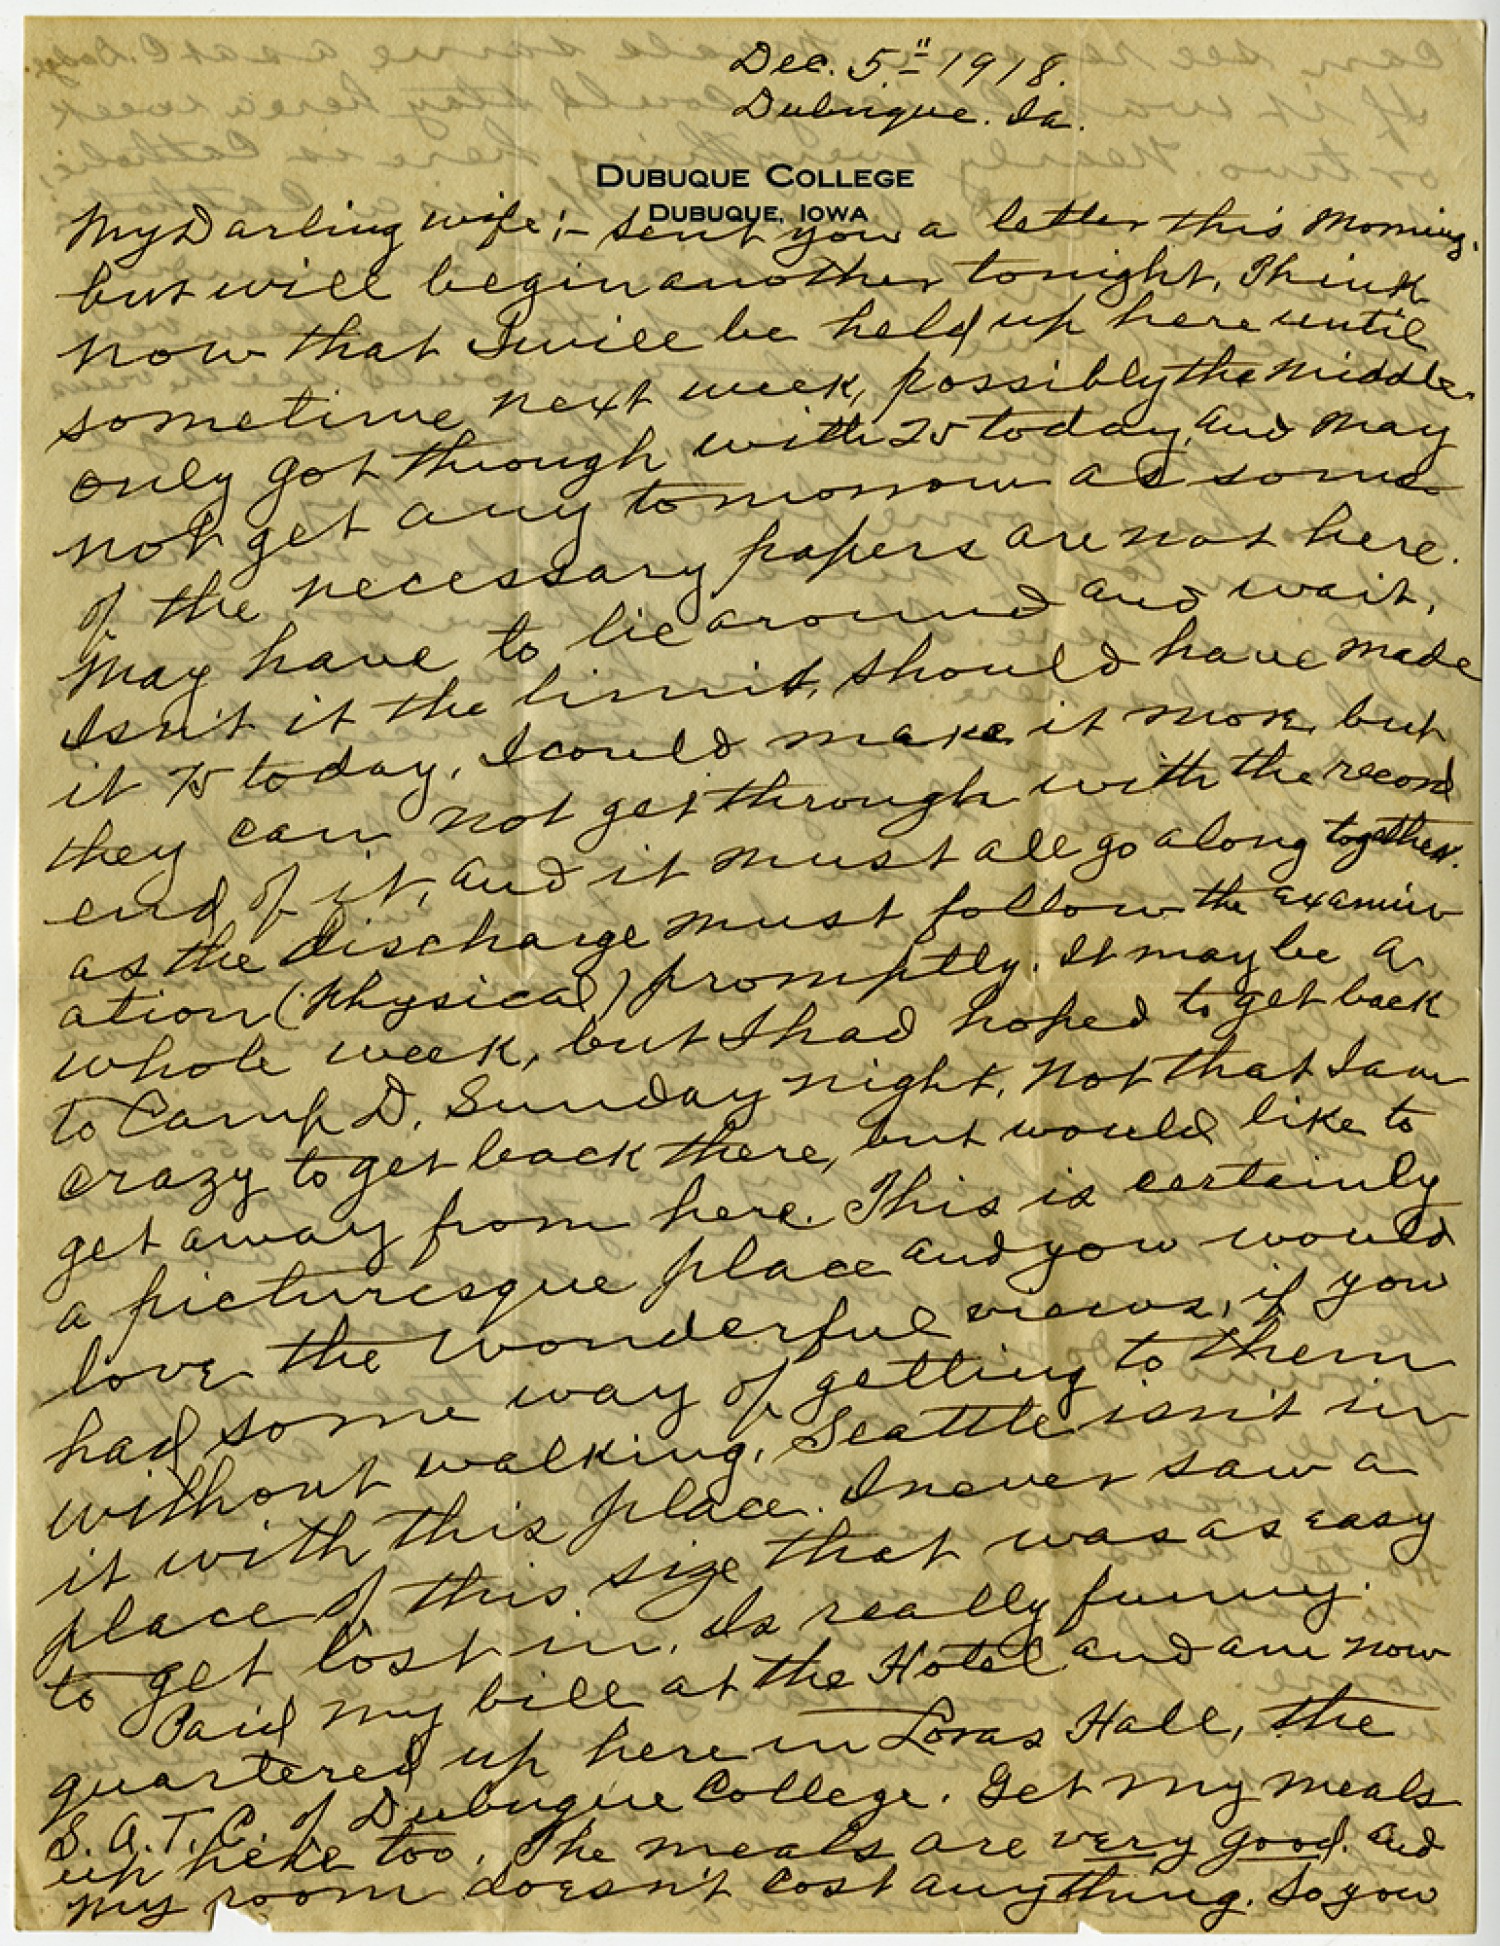 Dec. 5" 1918.
Dubuque. Ia.
DUBUQUE COLLEGE
DUBUQUE, IOWA
My Darling wife:- sent you a letter this morning.
but will begin another tonight. Think
now that I will be held up here until
sometime next week, possibly the middle.
only got through with 25 today and may
not get any tomorrow as some
of the necessary papers are not here.
May have to lie around and wait.
Isn't it the limit, should have made
it 75 today. I could make it more but
they can not get through with the record
end of it, and it must all go along together.
as the discharge must follow the examin
ation (Physical) promptly. It may be a
whole week, but I had hoped to get back
to Camp D. Sunday night. Not that I am
crazy to get back there, but would like to
get away from here. This is certainly
a picturesque place and you would
love the wonderful views, if you
had some way of getting to them
without walking. Seattle isn't in
it with this place. I never saw a
place of this size that was as easy
to get lost in. Is really funny.
Paid my bill at the Hotel and am now
quartered up here in Loras Hall, the
S. A. T. C. of Dubuque College. Get my meals
up here too. The meals are very good. and
my room doesn't cost anything. So you